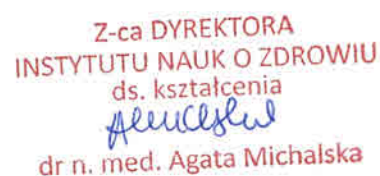 Z-ca DYREKTORA
INSTYTUTU NAUK O ZDROWIU
ds. kształcenia
dr n. med. Agata Michalska